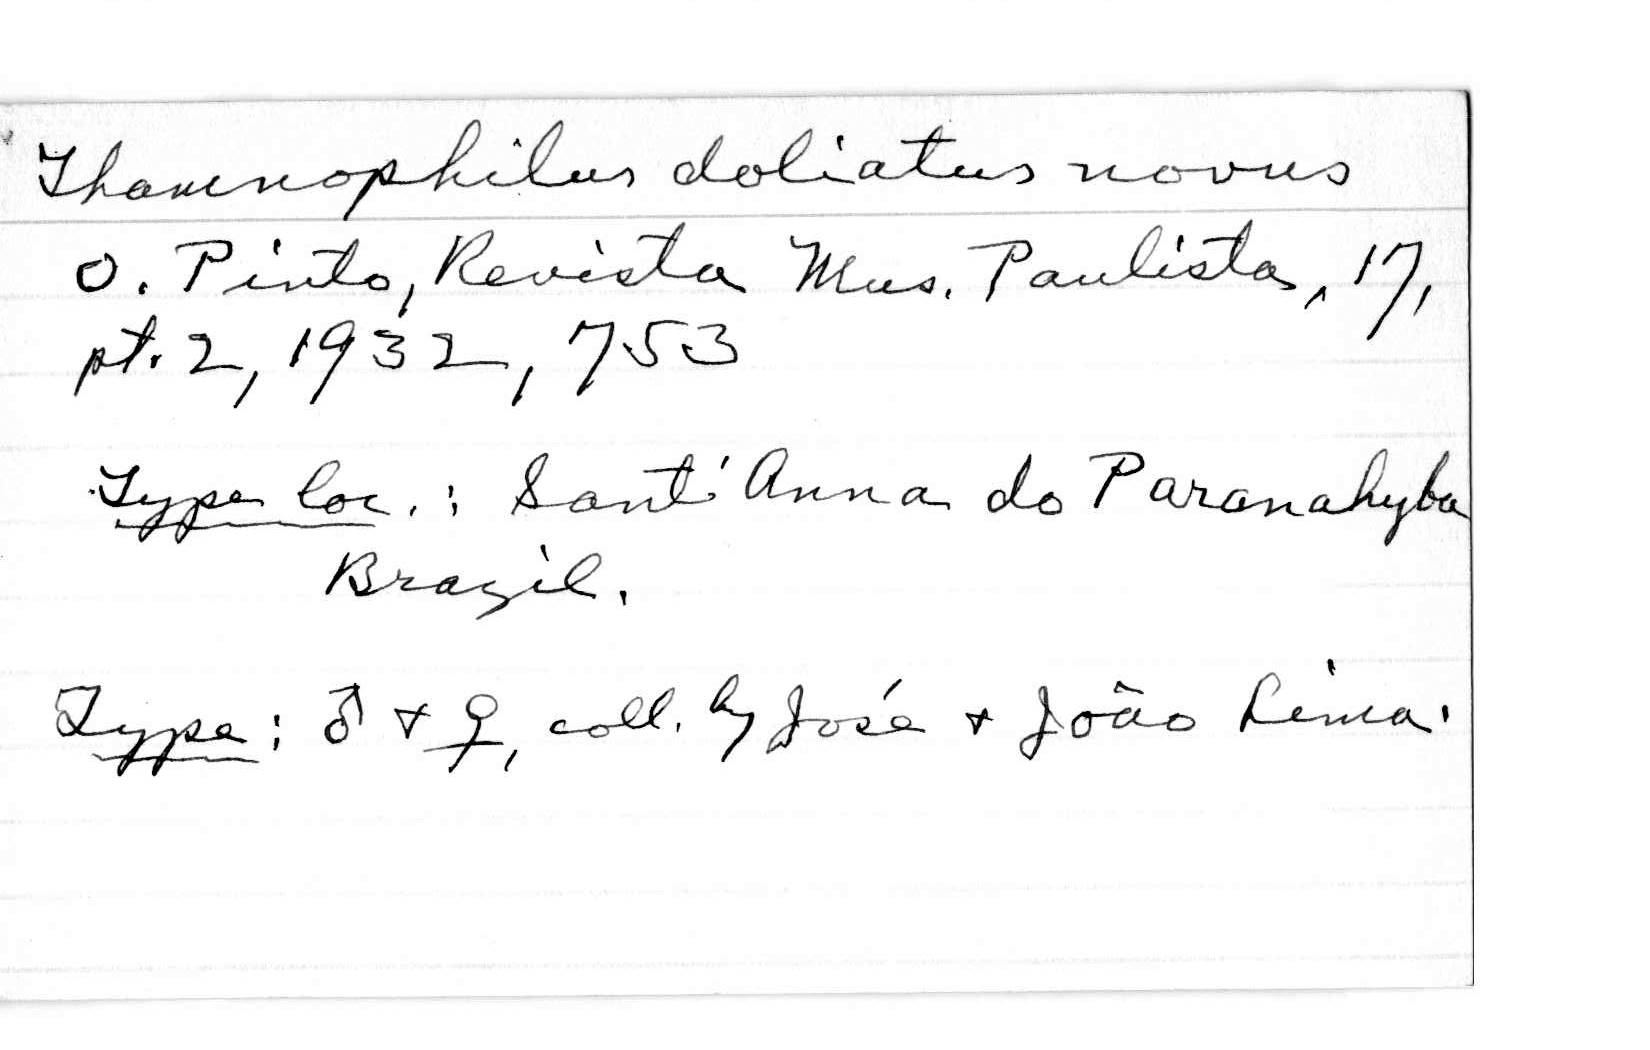 Thamnophilus doliatus novus
O. Pinto, Revista Mus. Paulista, 17,
pt. 2, 1932, 753
Type loc.: Sant'Anna do Paranahyba
Brazil.
Type: ♂ + ♀, coll. by José + João Lima.